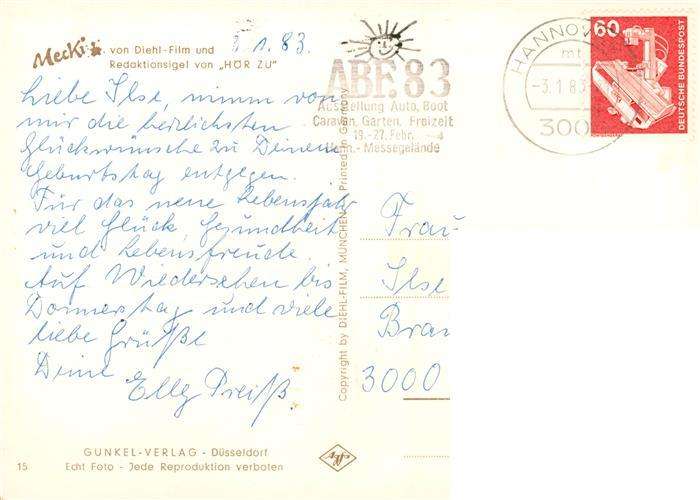 Mecki von Diehl-Film und
Redaktionsigel von „HÖR ZU"
1.83.
Liebe Ilse, nimm von
mir die herzlichsten
Glückwünsche zu Deinem
Geburtstag entgegen.
Für das neue Lebensjahr
viel Glück, Gesundheit
und Lebensfreude.
Auf Wiedersehen bis
Donnerstag und viele
liebe Grüße
Deine
Elly Preiß.
GUNKEL-VERLAG - Düsseldorf
15 Echt Foto - Jede Reproduktion verboten
Copyright by DIEHL-FILM, MÜNCHEN Printed in Germany
ABF. 83
Ausstellung Auto, Boot
Caravan, Garten, Freizeit
19.-27. Febr.
Hann.- Messegelände
HANNOV
mt
-3.1.83
300
60
DEUTSCHE BUNDESPOST
Frau
Ilse
Bra
3000
Agfa